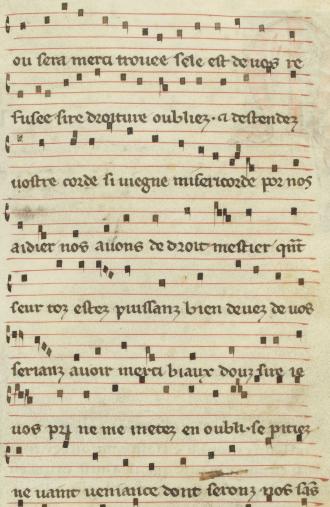 ou sera merci trouee sele est de uos re
fusee sire droiture oubliez · a destendez
uostre corde si uiegne misericorde por nos
aidier nos auons de droit mestier qnt
seur toz estez puissanz bien deuez de uos
serianz auoir merci biaux douz sire ie
uos pri ne me metez en oubli · se pitiez
ne uaint ueniance dont seronz nos sãs